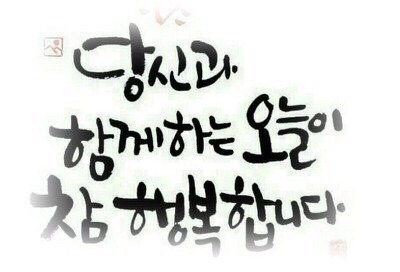 당신과
함께하는 오늘이
참 행복합니다.